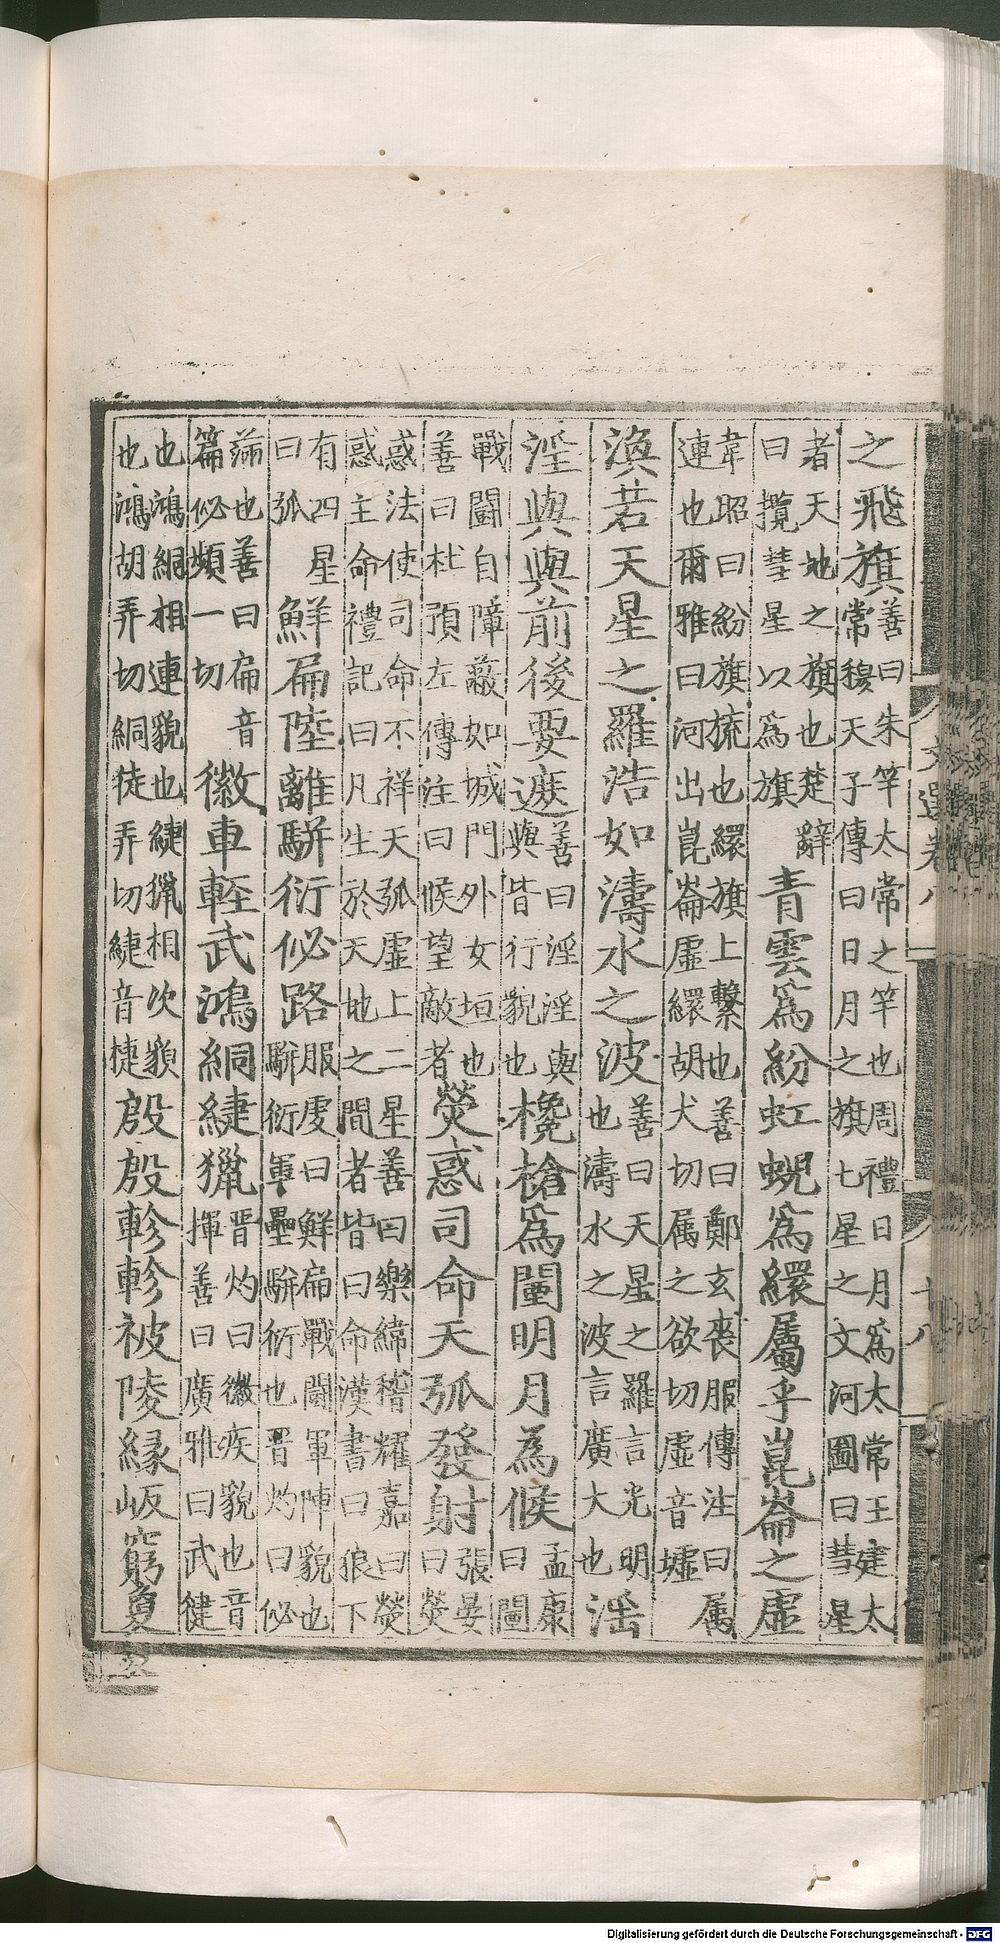 文選卷八 十八
之飛旗
善曰朱竿太常之竿也周禮日月爲太常王建太
常穆天子傳曰日月之旗七星之文河圖曰彗星
者天地之旗也楚辭
曰攬彗星以爲旗
青雲爲紛虹蜺爲繯屬乎崑崙之虛
韋昭曰紛旗旒也繯旗上繫也善曰鄭玄喪服傳注曰属
連也爾雅曰河出崑崙虛繯胡犬切属之欲切虛音墟
渙若天星之羅浩如濤水之波
善曰天星之羅言光明
也濤水之波言廣大也
淫
淫與與前後要遮
善曰淫淫與
與皆行貌也
欃槍爲闉明月為候
孟康
曰闉
戰鬪自障蔽如城門外女垣也
善曰杜預左傳注曰候望敵者
熒惑司命天弧發射
張晏
曰熒
惑法使司命不祥天弧虛上二星善曰樂緯稽耀嘉曰熒
惑主命禮記曰凡生於天地之間者皆曰命漢書曰狼下
有四星
曰弧
鮮扁陸離駢衍佖路
服虔曰鮮扁戰鬪軍陣貌也
駢衍軍壘駢衍也晋灼曰佖
滿也善曰扁音
篇佖頻一切
徽車輕武鴻絧緁獵
晋灼曰徽疾貌也音
揮善曰廣雅曰武健
也鴻絧相連貌也緁獵相次貌
也鴻胡弄切絧徒弄切緁音捷
殷殷軫軫被陵縁岅窮夐
Digitalisierung gefördert durch die Deutsche Forschungsgemeinschaft - DFG